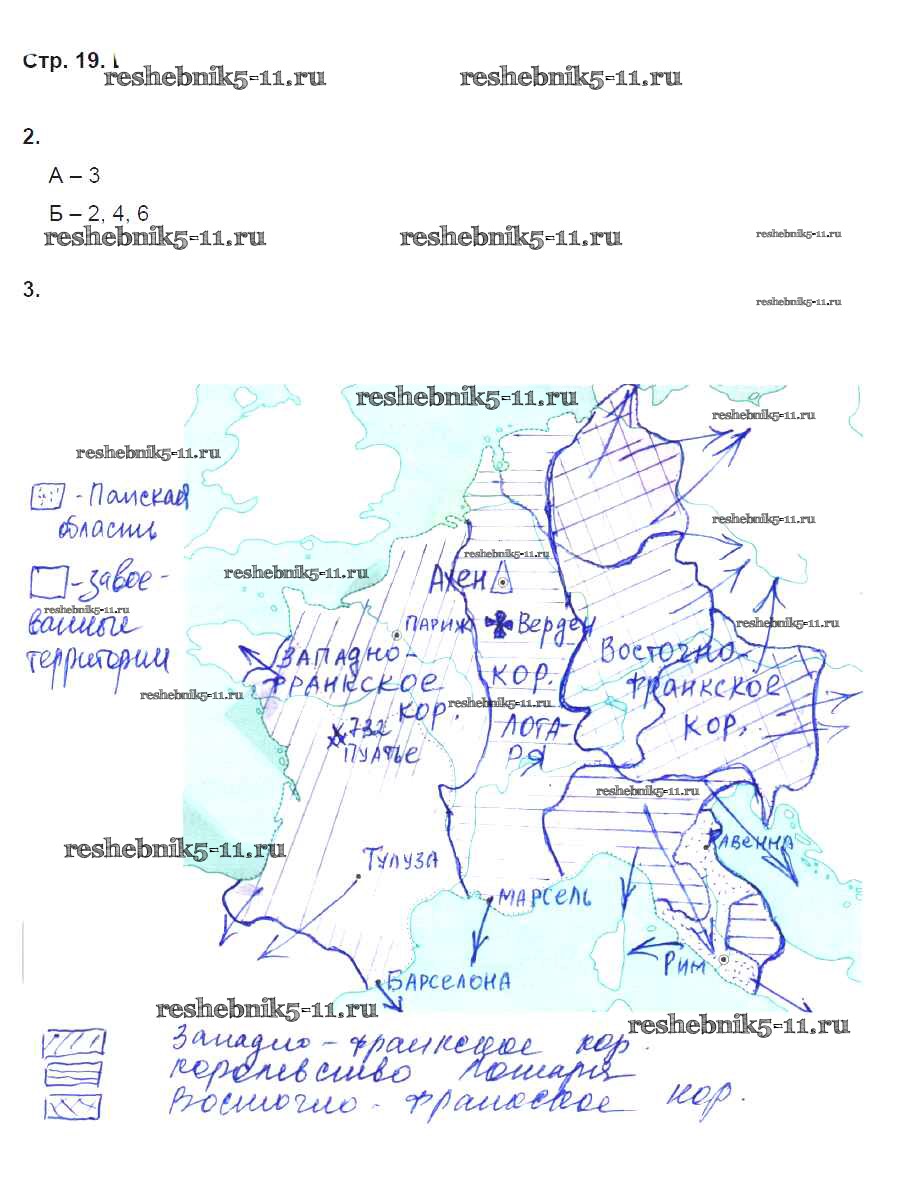 Стр. 19.
reshebnik5-11.ru reshebnik5-11.ru
2.
А – 3
Б – 2, 4, 6
reshebnik5-11.ru reshebnik5-11.ru reshebnik5-11.ru
3.
reshebnik5-11.ru
reshebnik5-11.ru
reshebnik5-11.ru
reshebnik5-11.ru
- Папская
область
reshebnik5-11.ru
reshebnik5-11.ru
reshebnik5-11.ru
Ахен
- завое-
reshebnik5-11.ru
ванные
территории
Париж
Верден
reshebnik5-11.ru
Западно-
франкское
кор.
кор.
Лота-
ря
Восточно-
франкское
кор.
reshebnik5-11.ru
reshebnik5-11.ru
732
Пуатье
reshebnik5-11.ru
reshebnik5-11.ru
Равенна
Тулуза
Марсель
Рим
Барселона
reshebnik5-11.ru
reshebnik5-11.ru
Западно-франкское кор.
королевство Лотаря
Восточно-франкское кор.